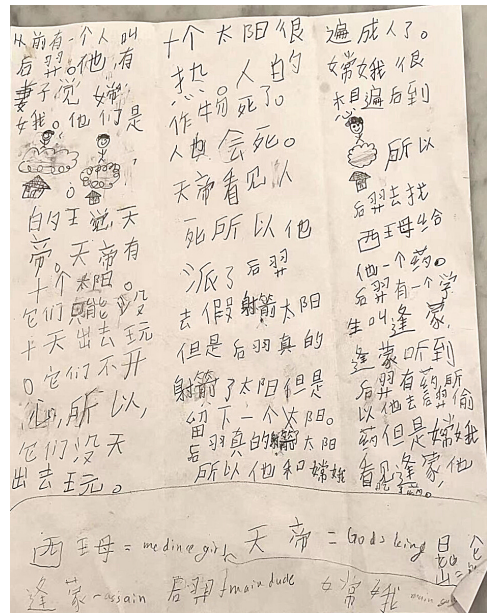 从前有一个人叫
后羿。他有
妻子说嫦
娥。他们是
的王说天
帝。天帝有
十个太阳。
它们只能没
十天出去玩
。它们不开
心,所以,
它们没天
出去玩。
十个太阳很
热。人的
作物死了。
人也会死。
天帝看见人
死所以他
派了后羿
去假射箭太阳
但是后羽真的
射箭了太阳但是
留下一个太阳。
后羽真的射箭太阳
所以他和嫦娥
遍成人了。
嫦娥很
想遍后到
所以
后羿去找
西王母给
他一个药。
后羿有一个学
生叫逢蒙,
逢蒙听到
后羿有药所
以他去后羿偷
药但是嫦娥
看见逢蒙,他
西王母 = medince girl 天帝 = Gods king
逢蒙 - assain 后羿 = main dude 嫦娥